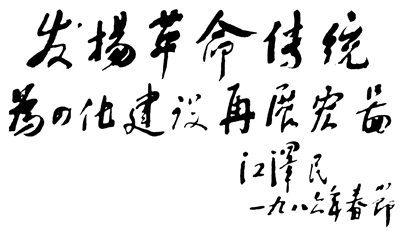 发揚革命传统
為四化建设再展宏畵
江澤民
一九八六年春節